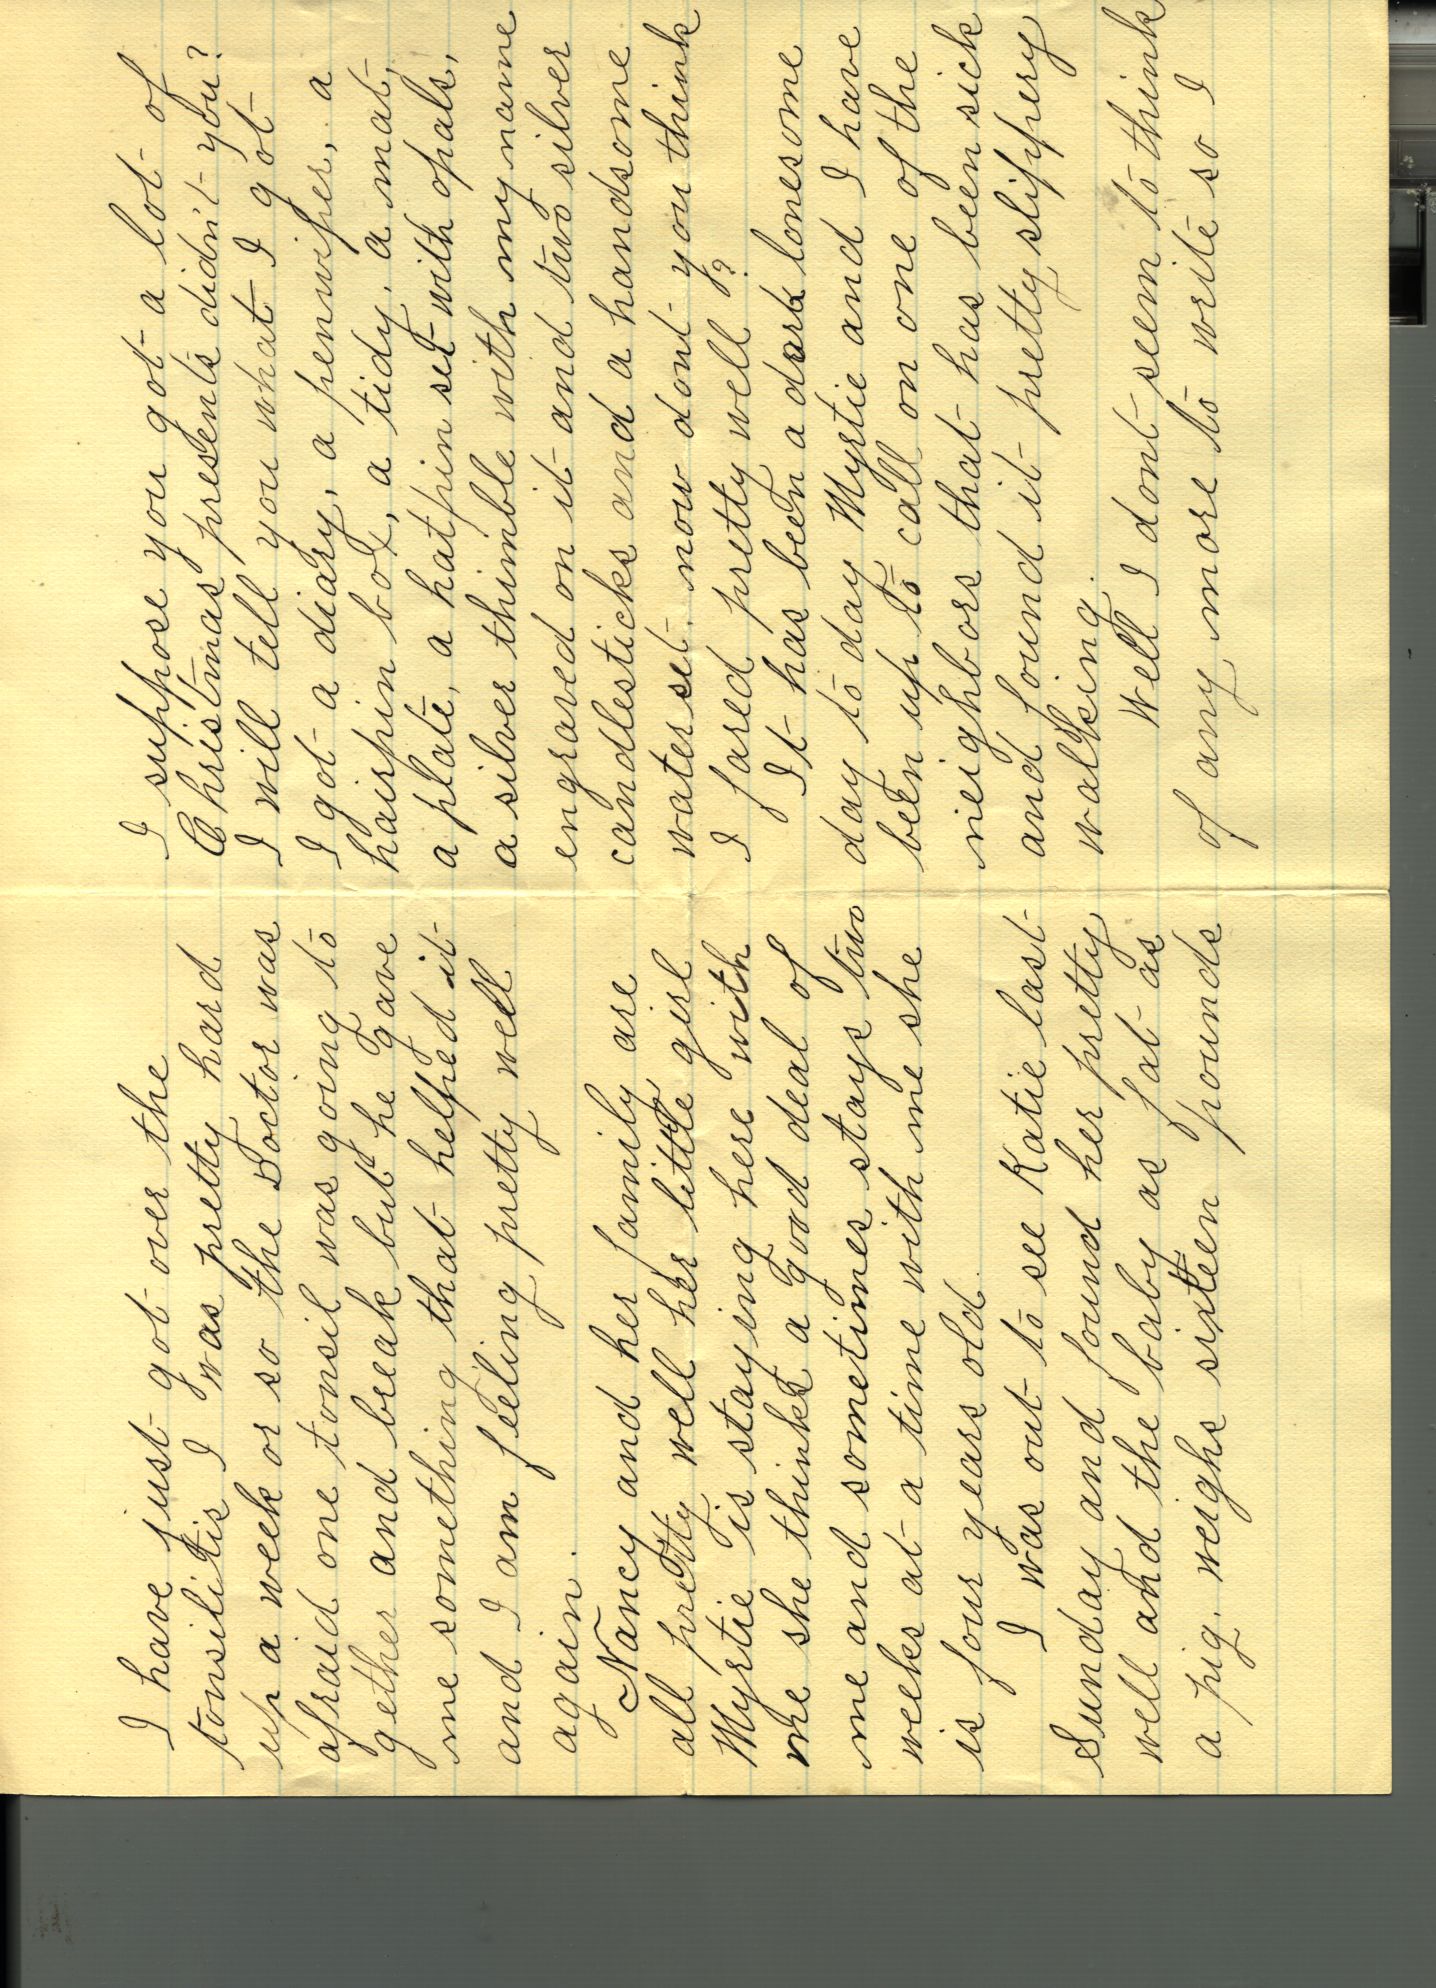 I have just got over the
tonsilitis I was pretty hard
up a week or so the Doctor was
afraid one tonsil was going to
gether and break but he gave
me something that helped it
and I am feeling pretty well
again.
Nancy and her family are
all pretty well her little girl
Myrtie is staying here with
me she thinks a good deal of
me and sometimes stays two
weeks at a time with me she
is four years old.
I was out to see Katie last
Sunday and found her pretty
well and the baby as fat as
a pig. weighs sixteen pounds
I suppose you got a lot of
Christmas presents didn't you?
I will tell you what I got
I got a diary, a penwiper, a
hairpin box, a tidy, a mat,
a plate, a hatpin set with opals,
a silver thimble with my name
engraved on it and two silver
candlesticks and a handsome
water set. now dont you think
I fared pretty well?
It has been a dark lonesome
day to day Myrtie and I have
been up to call on one of the
neighbors that has been sick
and found it pretty slippery
walking.
Well I dont seem to think
of any more to write so I